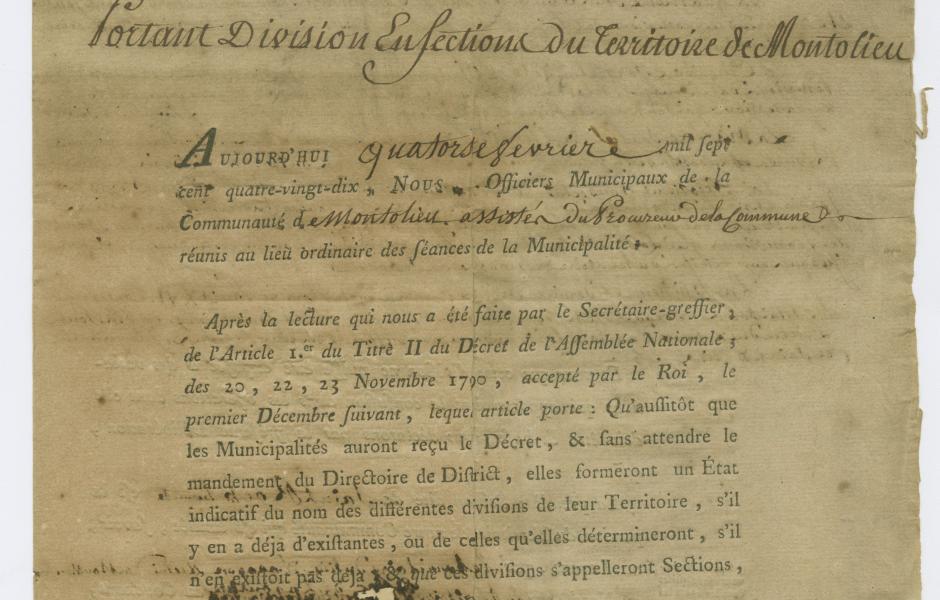 Portant Division En sections du Territoire de Montolieu
AUJOURD'HUI quatorse fevrier mil sept
cent quatre-vingt-dix, NOUS Officiers Municipaux de la
Communauté de Montolieu assistés du Procureur de la Commune
réunis au lieu ordinaire des séances de la Municipalité;
Après la lecture qui nous a été faite par le Secrétaire-greffier,
de l'Article 1.er du Titre II du Décret de l'Assemblée Nationale;
des 20, 22, 23 Novembre 1790, accepté par le Roi, le
premier Décembre suivant, lequel article porte : Qu'aussitôt que
les Municipalités auront reçu le Décret, & sans attendre le
mandement du Directoire de District, elles formeront un État
indicatif du nom des différentes divisions de leur Territoire, s'il
y en a déja d'existantes, ou de celles qu'elles détermineront, s'il
n'en existoit pas déja; & que ces divisions s'appelleront Sections,